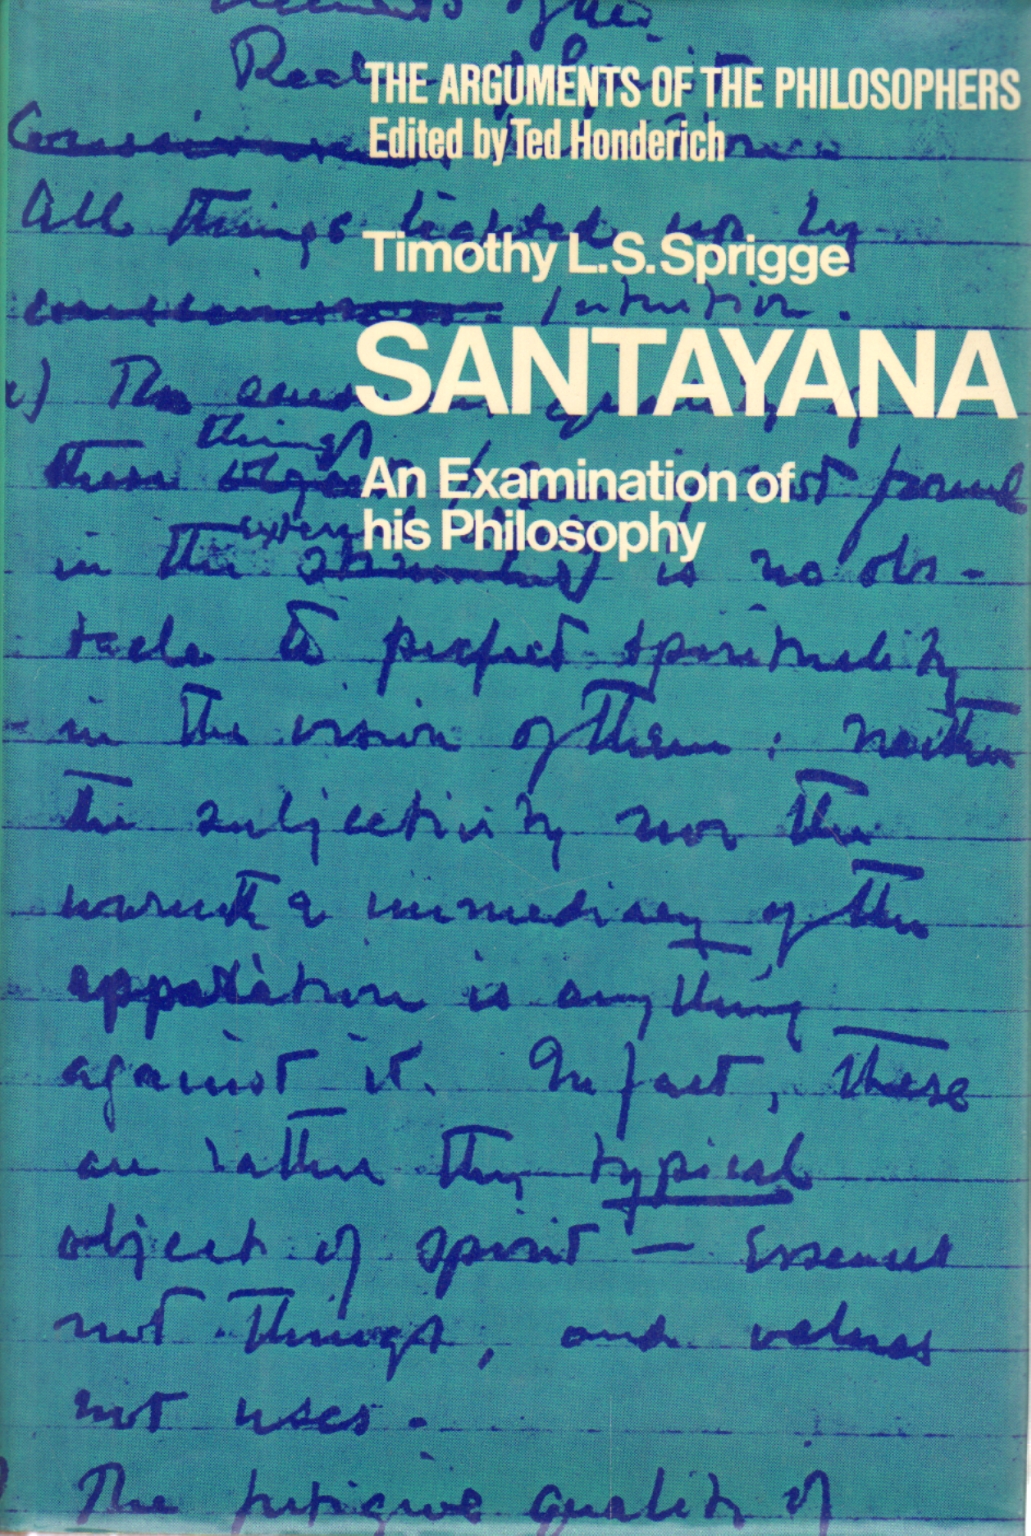 THE ARGUMENTS OF THE PHILOSOPHERS
Edited by Ted Honderich
Timothy L.S. Sprigge
SANTAYANA
An Examination of
his Philosophy
All things lighted up by
Intuition.
The
things
these not found
in the is no obs-
tacle to perfect spirituality
in the vision of them: neither
the subjectivity nor the
warmth & immediacy of the
apparition is anything
against it. In fact, these
are rather the typical
object of spirit — Essences
not things, and values
not uses.
The quality of